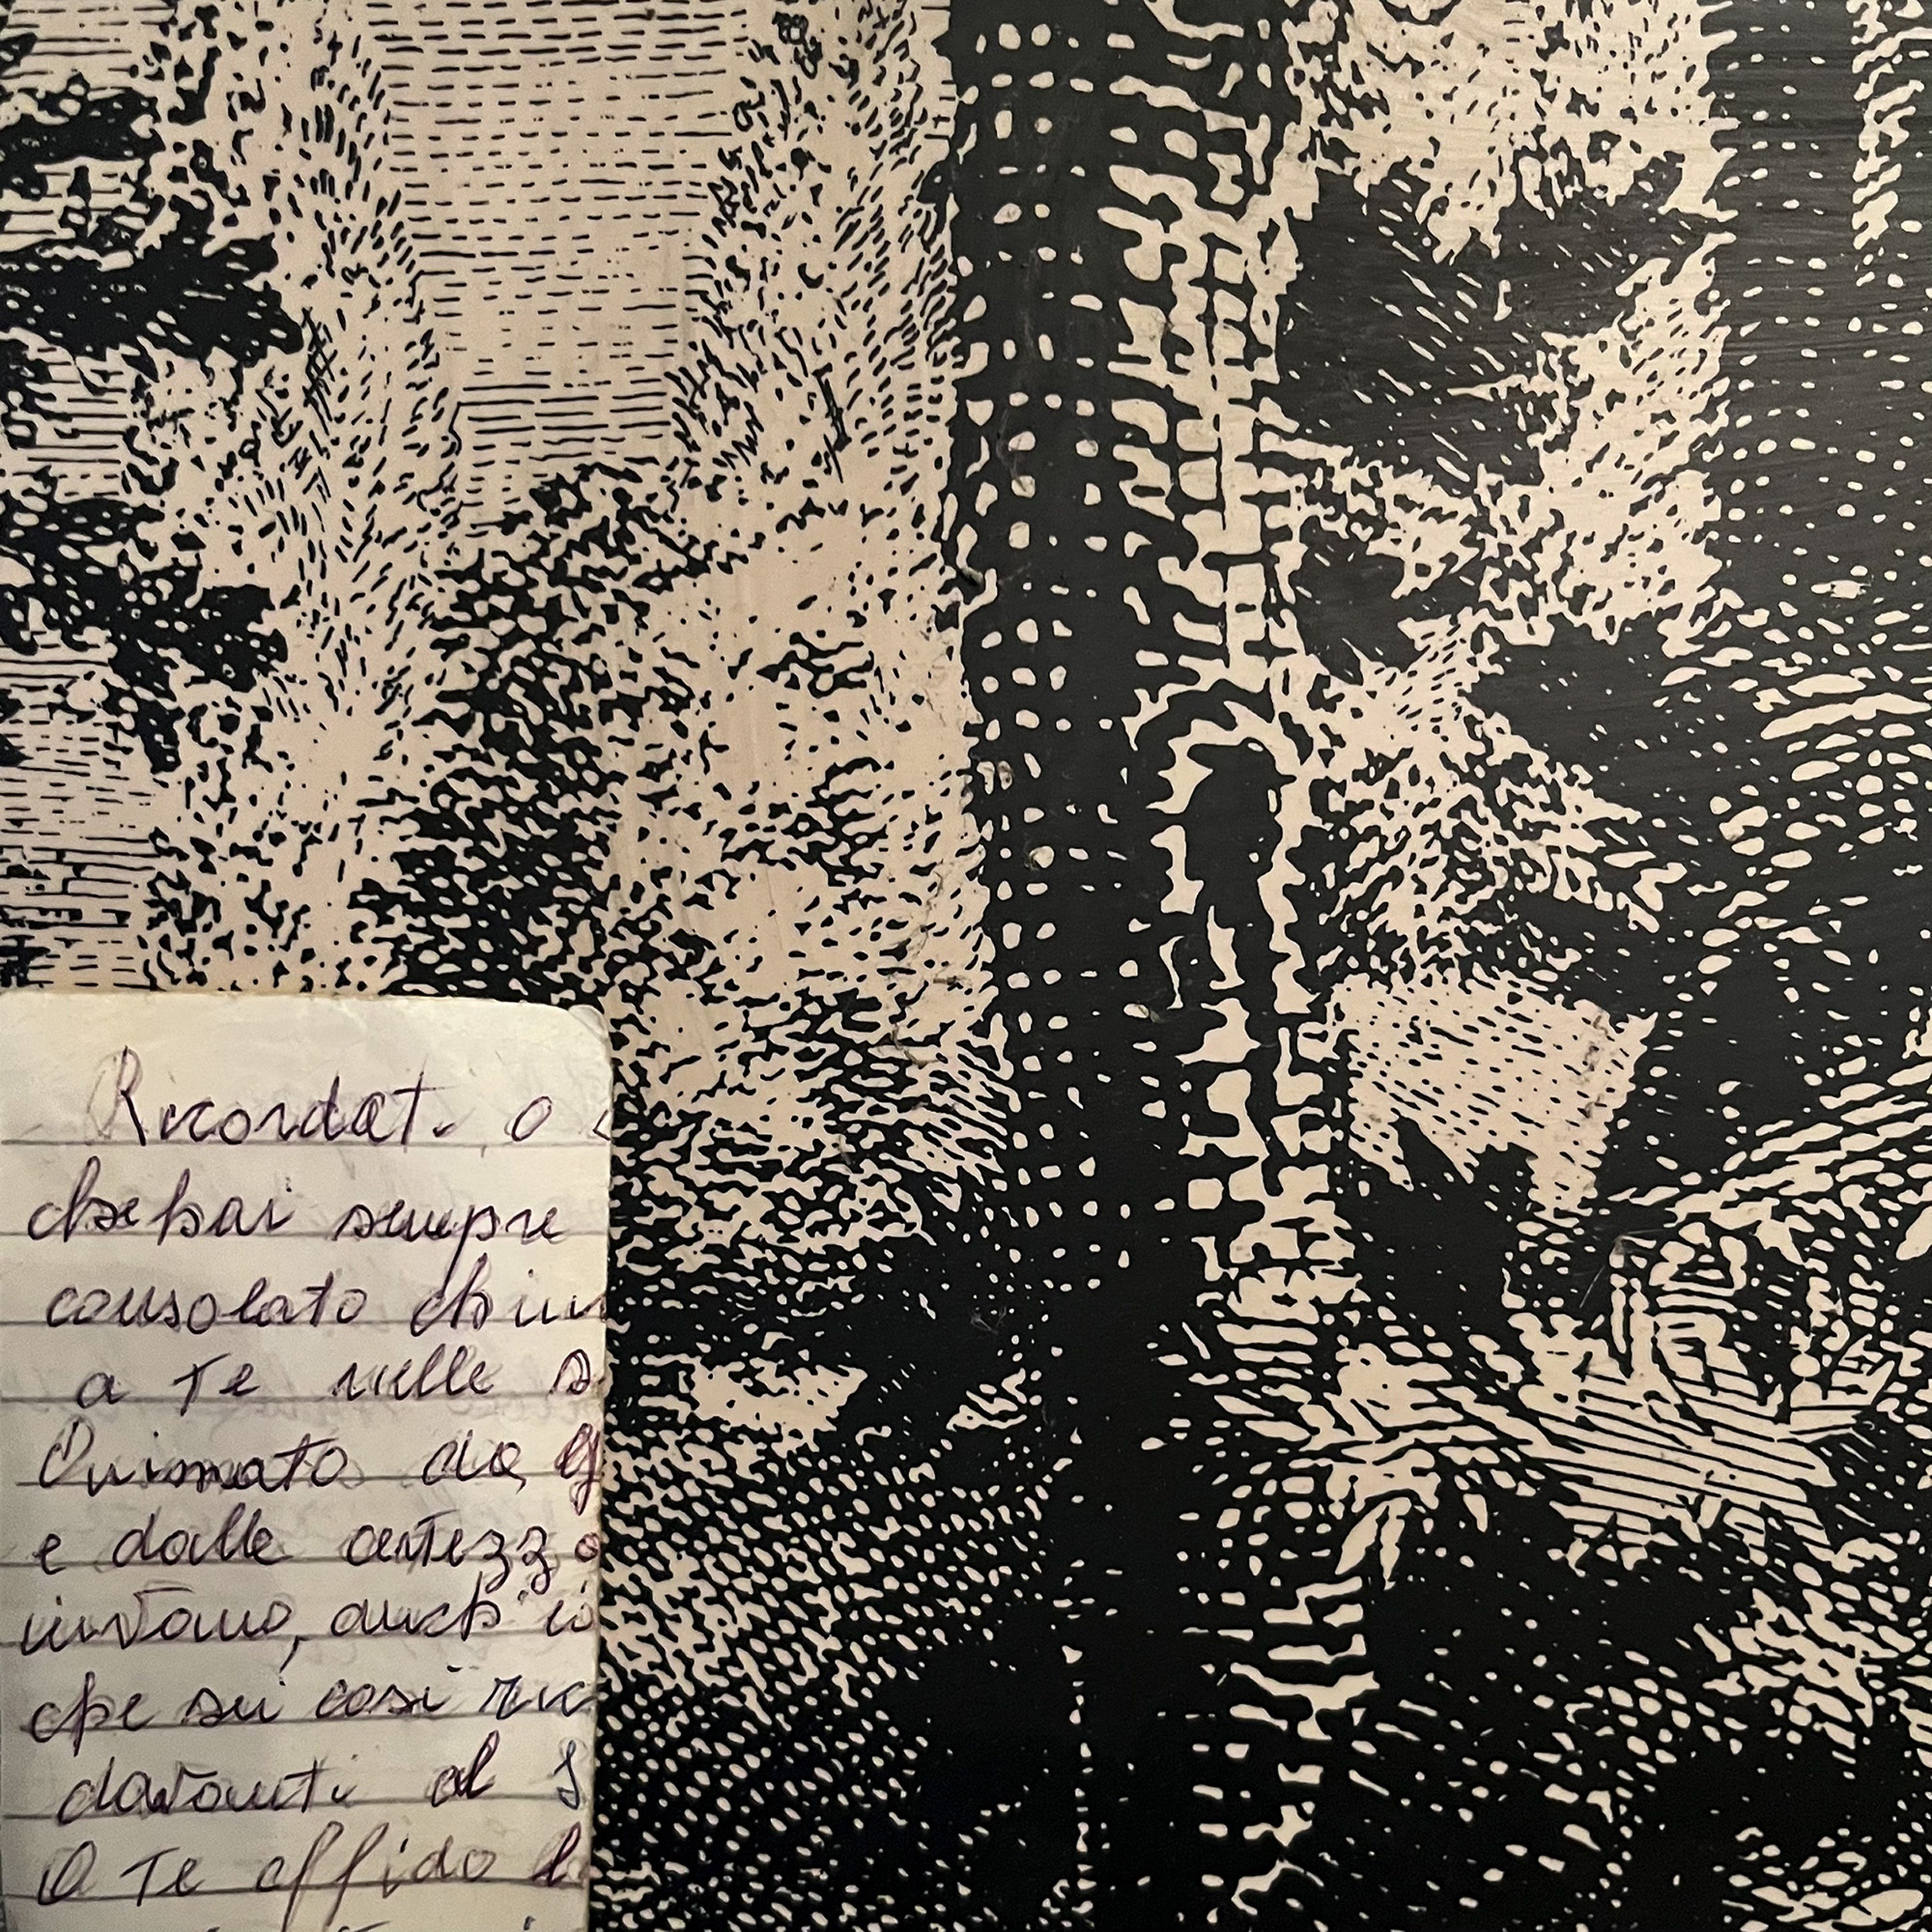 Ricordati, o
che hai sempre
consolato chiun
a Te nelle s
Animato da g
e dalla certezza
invano, anch' io
che sei così ric
davanti al S
A Te affido l